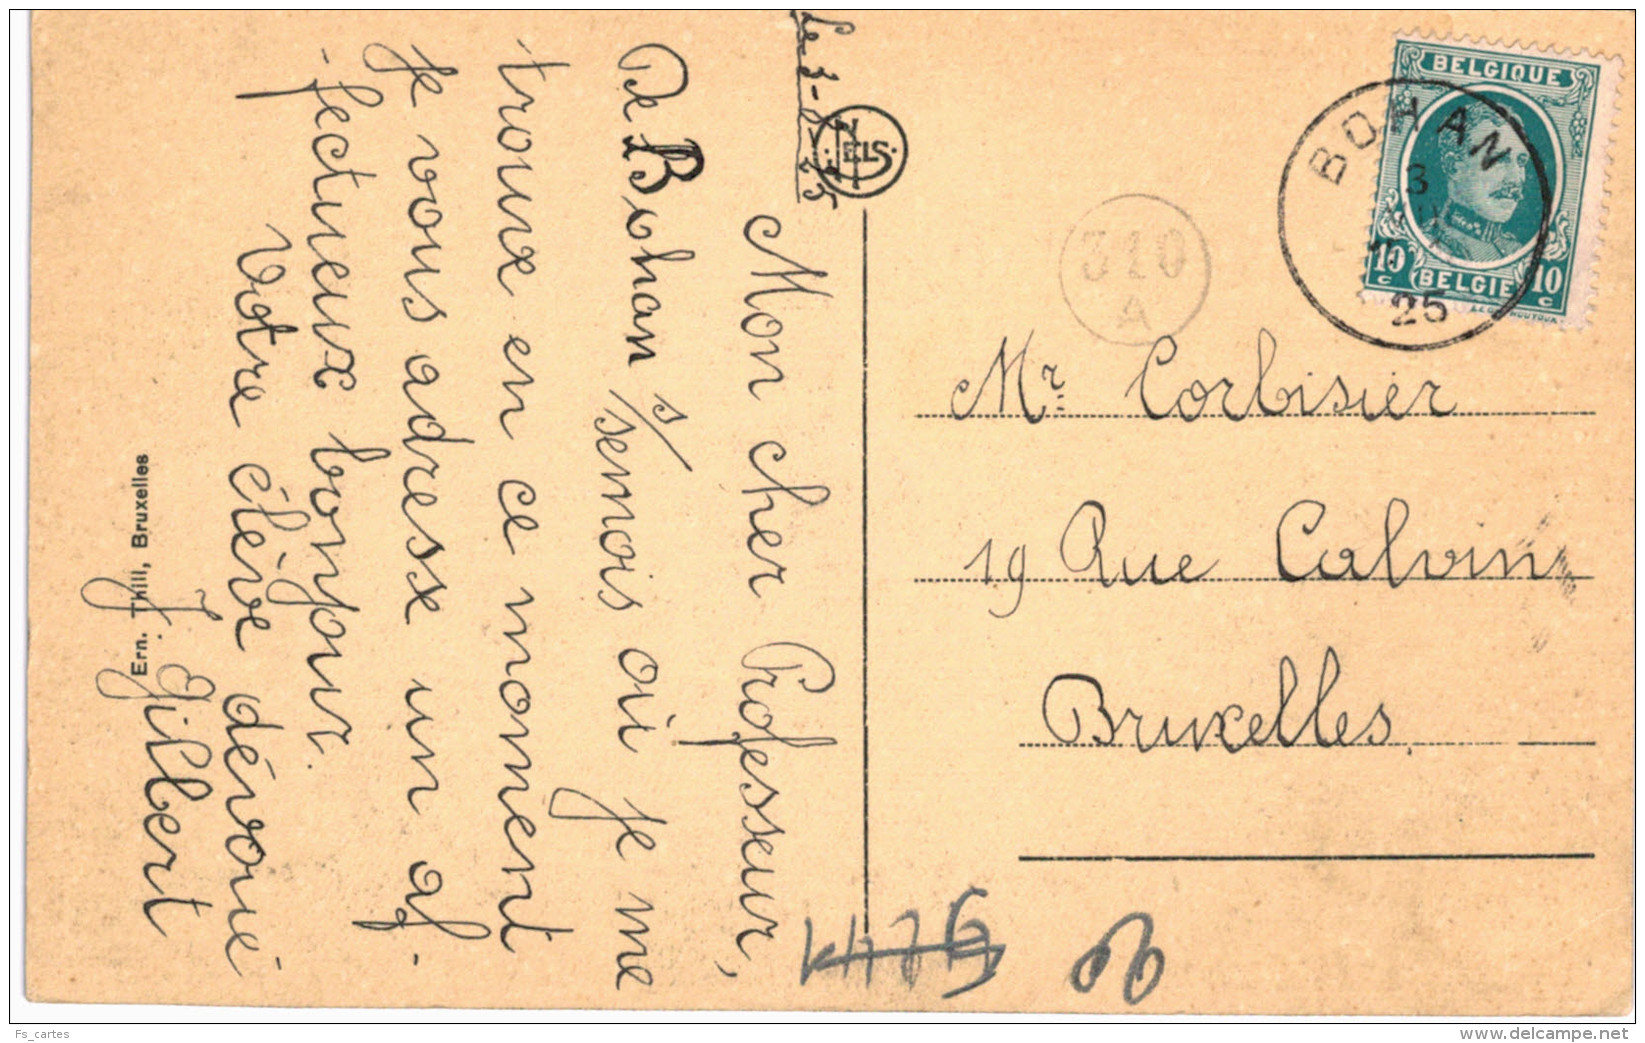 Le 3-8-25
Mon cher Professeur,
De Bohan s/semois où je me
trouve en ce moment
je vous adresse un af-
-fectueux bonjour.
Votre élève dévoué
J. Gilbert
Ern. Thill, Bruxelles
NELS
310
A
BOHAN
3
25
BELGIQUE
10 c
BELGIE
10 c
Mr Corbisier
19 Rue Calvin
Bruxelles.
Fs_cartes
www.delcampe.net